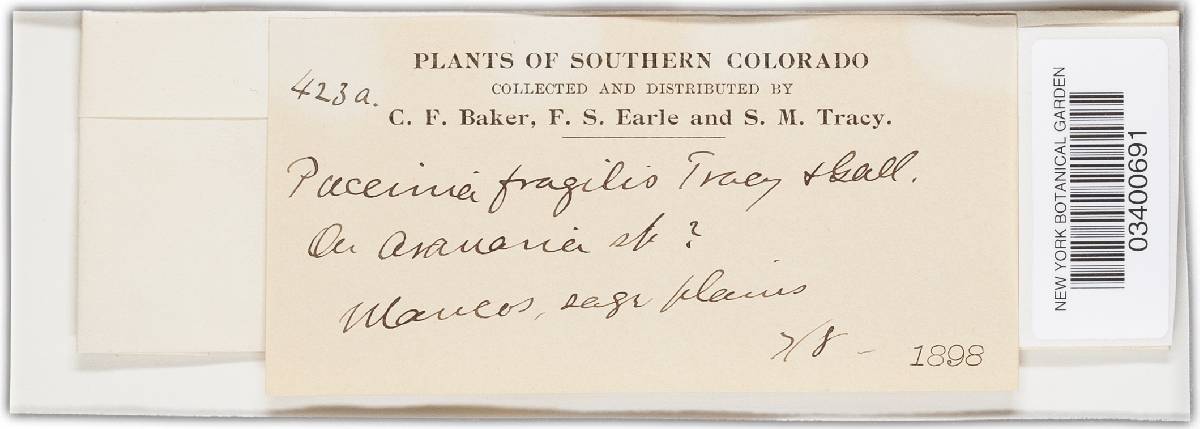 PLANTS OF SOUTHERN COLORADO
COLLECTED AND DISTRIBUTED BY
423a.
C. F. Baker, F. S. Earle and S. M. Tracy.
Puccinia fragilis Tracy & Gall.
On Arenaria sp?
Mancos, sage plains
7/8 - 1898
NEW YORK BOTANICAL GARDEN
03400691